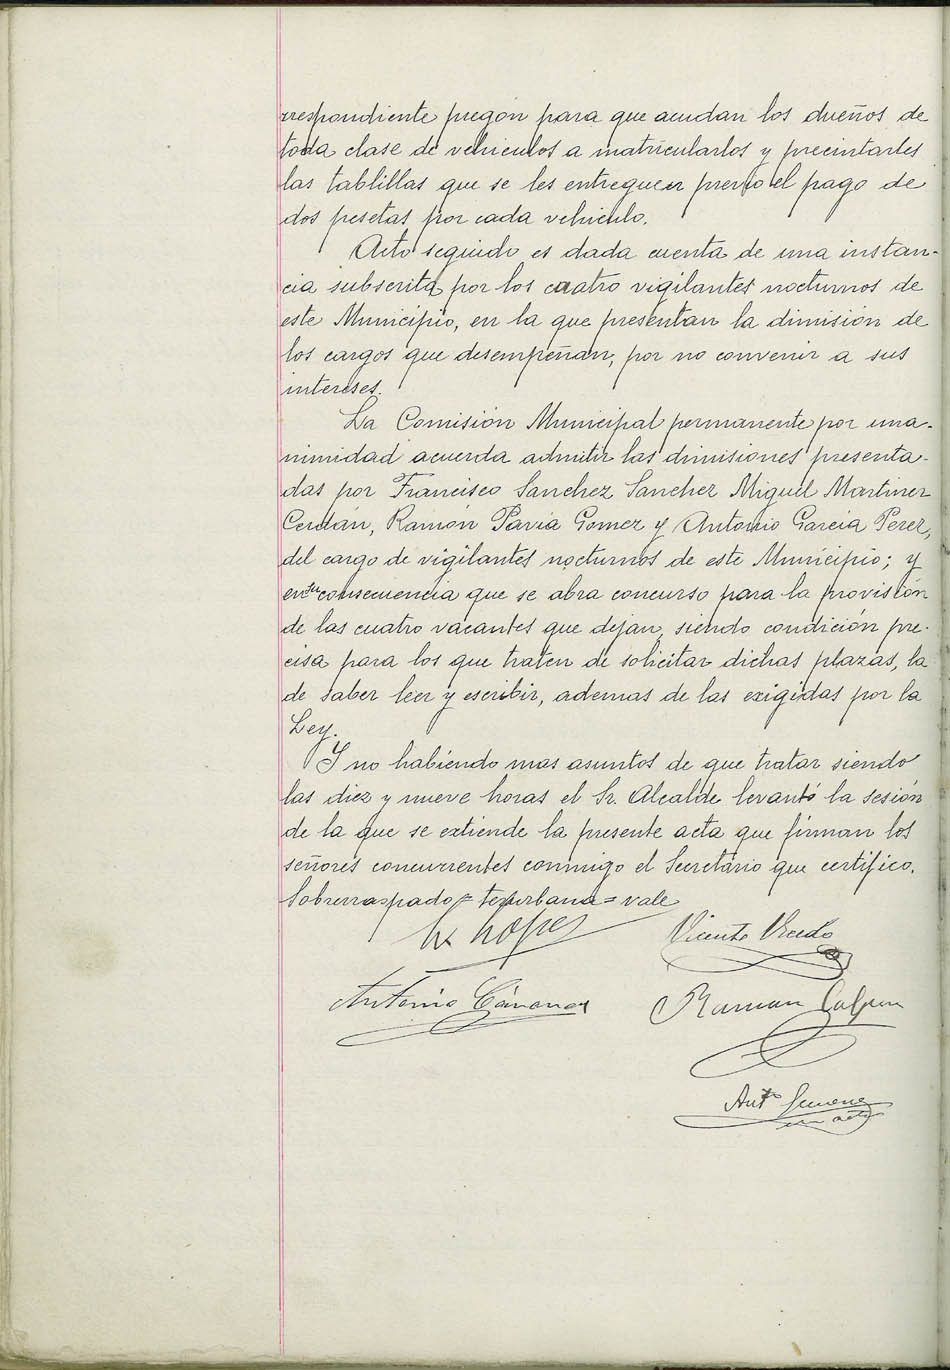 rrespondiente pregón para que acudan los dueños de
toda clase de vehiculos a matricularlos y precintarles
las tablillas que se les entreguen previo el pago de
dos pesetas por cada vehiculo.
Acto seguido es dada cuenta de una instan-
cia subscrita por los cuatro vigilantes nocturnos de
este Municipio, en la que presentan la dimisión de
los cargos que desempeñan, por no convenir a sus
intereses.
La Comisión Municipal permanente por una-
nimidad acuerda admitir las dimisiones presenta-
das por Francisco Sanchez Sanchez Miguel Martinez
Cerdán, Ramón Pavia Gomez y Antonio Garcia Perez,
del cargo de vigilantes nocturnos de este Municipio; y
en su consecuencia que se abra concurso para la provisión
de las cuatro vacantes que dejan, siendo condición pre-
cisa para los que traten de solicitar dichas plazas, la
de saber leer y escribir, ademas de las exigidas por la
Ley.
Y no habiendo mas asuntos de que tratar siendo
las diez y nueve horas el Sr. Alcalde levantó la sesión
de la que se extiende la presente acta que firman los
señores concurrentes conmigo el Secretario que certifico.
Sobrerraspado = = vale
López Vicente
Antonio Cánovas Ramon
Antº